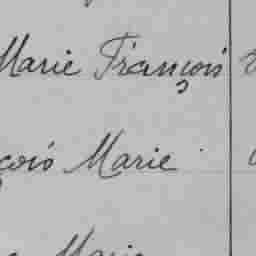 Marie François
çois Marie
Marie